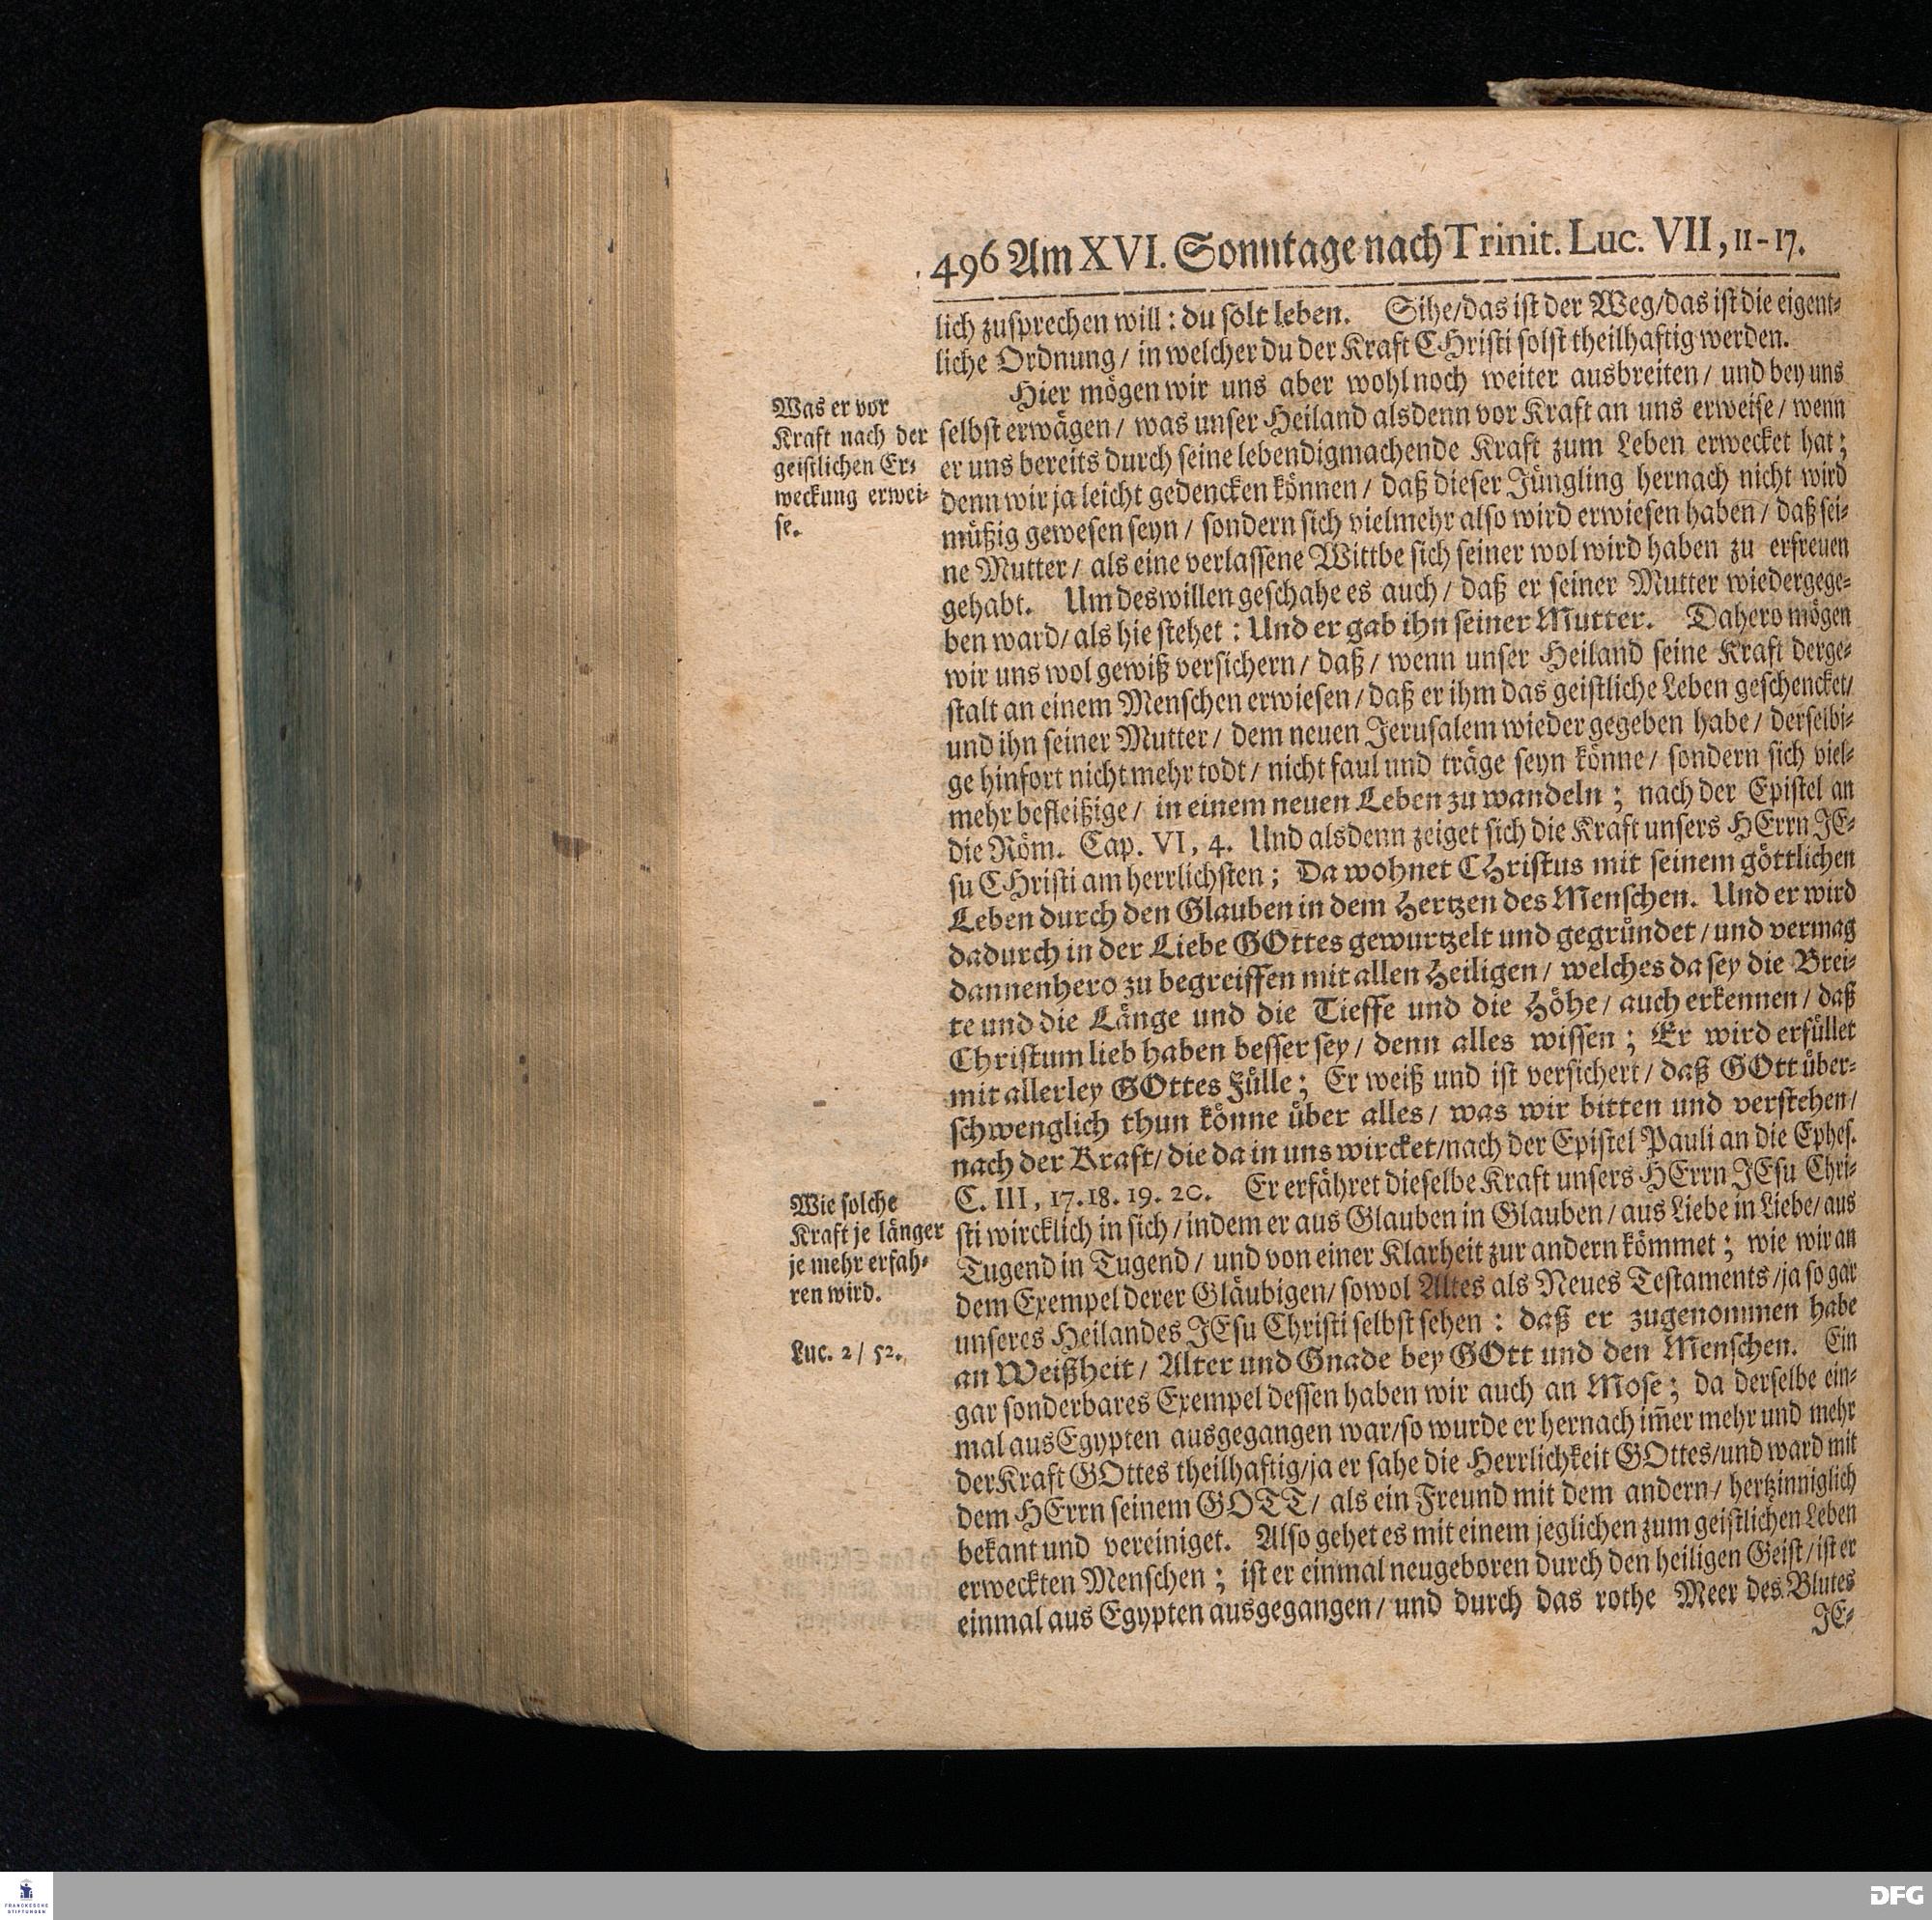 496 Am XVI. Sonntage nach Trinit. Luc. VII, 11-17.
lich zusprechen will: du solt leben. Sihe/das ist der Weg/das ist die eigent-
liche Ordnung/ in welcher du der Kraft CHristi solst theilhaftig werden.
Hier mögen wir uns aber wohl noch weiter ausbreiten/ und bey uns
selbst erwägen/ was unser Heiland alsdenn vor Kraft an uns erweise/ wenn
er uns bereits durch seine lebendigmachende Kraft zum Leben erwecket hat;
denn wir ja leicht gedencken können/ daß dieser Jüngling hernach nicht wird
müßig gewesen seyn/ sondern sich vielmehr also wird erwiesen haben/ daß sei-
ne Mutter/ als eine verlassene Wittbe sich seiner wol wird haben zu erfreuen
gehabt. Um deswillen geschahe es auch/ daß er seiner Mutter wiedergege-
ben ward/ als hie stehet: Und er gab ihn seiner Mutter. Dahero mögen
wir uns wol gewiß versichern/ daß/ wenn unser Heiland seine Kraft derge-
stalt an einem Menschen erwiesen/ daß er ihm das geistliche Leben geschencket/
und ihn seiner Mutter/ dem neuen Jerusalem wieder gegeben habe/ derselbi-
ge hinfort nicht mehr todt/ nicht faul und träge seyn könne/ sondern sich viel-
mehr befleißige/ in einem neuen Leben zu wandeln; nach der Epistel an
die Röm. Cap. VI, 4. Und alsdenn zeiget sich die Kraft unsers HErrn JE-
su CHristi am herrlichsten; Da wohnet CHristus mit seinem göttlichen
Leben durch den Glauben in dem Hertzen des Menschen. Und er wird
dadurch in der Liebe GOttes gewurtzelt und gegründet/ und vermag
dannenhero zu begreiffen mit allen Heiligen/ welches da sey die Brei-
te und die Länge und die Tieffe und die Höhe/ auch erkennen/ daß
Christum lieb haben besser sey/ denn alles wissen; Er wird erfüllet
mit allerley GOttes Fülle; Er weiß und ist versichert/ daß GOtt über-
schwenglich thun könne über alles/ was wir bitten und verstehen/
nach der Kraft/ die da in uns wircket/nach der Epistel Pauli an die Ephes.
C. III, 17. 18. 19. 20. Er erfähret dieselbe Kraft unsers HErrn JEsu Chri-
sti wircklich in sich/ indem er aus Glauben in Glauben/ aus Liebe in Liebe/ aus
Tugend in Tugend/ und von einer Klarheit zur andern kömmet; wie wir an
dem Exempel derer Gläubigen/ sowol Altes als Neues Testaments/ja so gar
unseres Heilandes JEsu Christi selbst sehen: daß er zugenommen habe
an Weißheit/ Alter und Gnade bey GOtt und den Menschen. Ein
gar sonderbares Exempel dessen haben wir auch an Mose; da derselbe ein-
mal aus Egypten ausgegangen war/so wurde er hernach im̃er mehr und mehr
der Kraft GOttes theilhaftig/ja er sahe die Herrlichkeit GOttes/und ward mit
dem HErrn seinem GOTT/ als ein Freund mit dem andern/ hertzinniglich
bekant und vereiniget. Also gehet es mit einem jeglichen zum geistlichen Leben
erweckten Menschen; ist er einmal neugeboren durch den heiligen Geist/ ist er
einmal aus Egypten ausgegangen/ und durch das rothe Meer des Blutes
JE-
Was er vor
Kraft nach der
geistlichen Er-
weckung erwei-
se.
Wie solche
Kraft je länger
je mehr erfah-
ren wird.
Luc. 2/ 52.
FRANCKESCHE
STIFTUNGEN
DFG